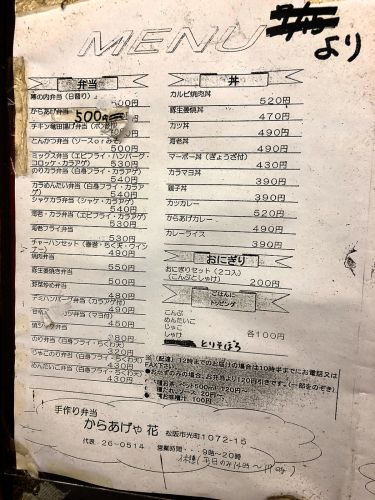 MENU
より
弁当
幕の内弁当(日替り) 500円
からあげ弁当 500円
チキン竜田揚げ弁当
とんかつ弁当(ソースorみそ) 530円
ミックス弁当(エビフライ・ハンバーグ・
コロッケ・カラアゲ) 540円
のりカラ弁当(白身フライ・カラアゲ) 540円
カラめんたい弁当(白身フライ・カラアゲ) 540円
シャケカラ弁当(シャケ・カラアゲ) 540円
海老・カラ弁当(エビフライ・カラアゲ) 530円
海老フライ弁当 530円
チャーハンセット(春巻・ちく天・ウインナー) 490円
焼肉弁当 550円
豚生姜焼き弁当 500円
野菜炒め弁当 480円
ナミハンバーグ弁当(カラアゲ付)
(マヨ付) 450円
のり弁当(白身フライ・ちくわ天) 320円
じゃこのり弁当(白身フライ・ちくわ天) 430円
めんたいこ弁当(白身フライ・ちくわ天) 430円
丼
カルビ焼肉丼 520円
豚生姜焼丼 470円
カツ丼 490円
海老丼 490円
マーボー丼(ぎょうざ付) 430円
カラマヨ丼 390円
親子丼 390円
カツカレー 520円
からあげカレー 490円
カレーライス 390円
おにぎり
おにぎりセット(2コ入)
(こんぶとしゃけ) 200円
ごはんに
トッピング
こんぶ
めんたいこ
じゃこ
しゃけ 各100円
とりそぼろ
※(配達)12時までのお届けの場合は10時半までにお電話又は
FAX下さい。
●おかずのみの場合、お弁当より120円引きです。(一部をのぞき)
手作り弁当
からあげや 花 松阪市光町1072-15
代表 26-0514 営業時間・・・9時〜20時
休憩(平日のみ14時〜17時)